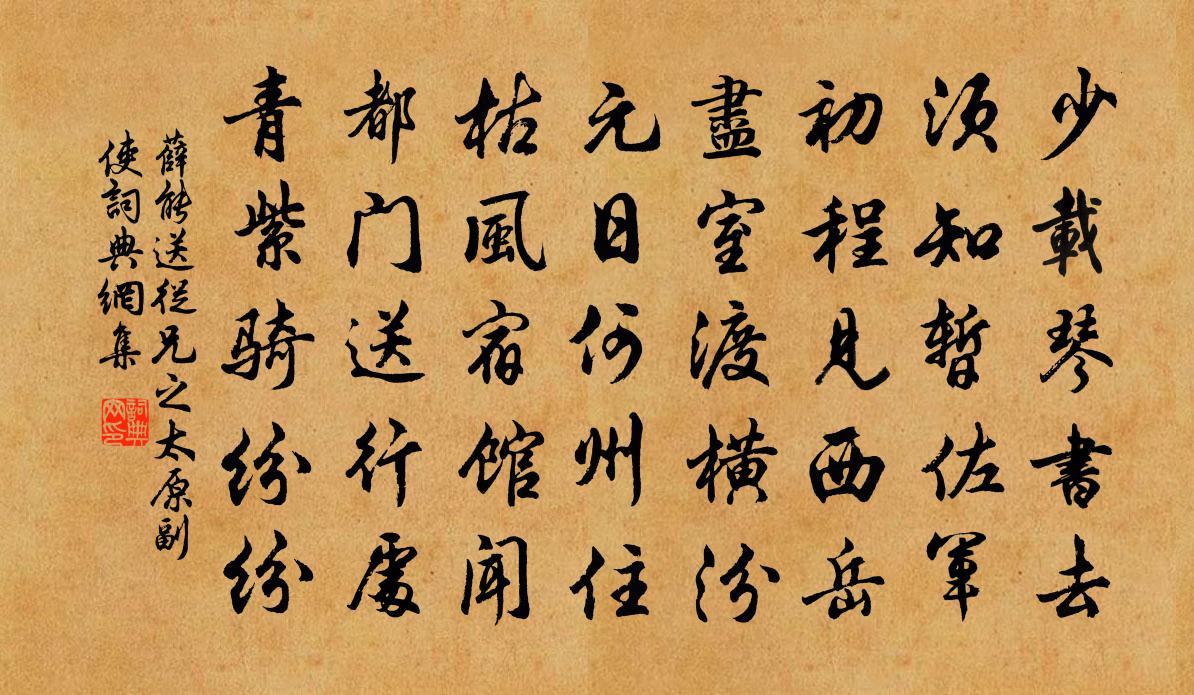 少載琴書去
須知暫佐軍
初程見西岳
盡室渡橫汾
元日何州住
枯風宿館聞
都门送行處
青紫骑纷纷
薛能送從兄之太原副
使詞典網集
詞典
网印